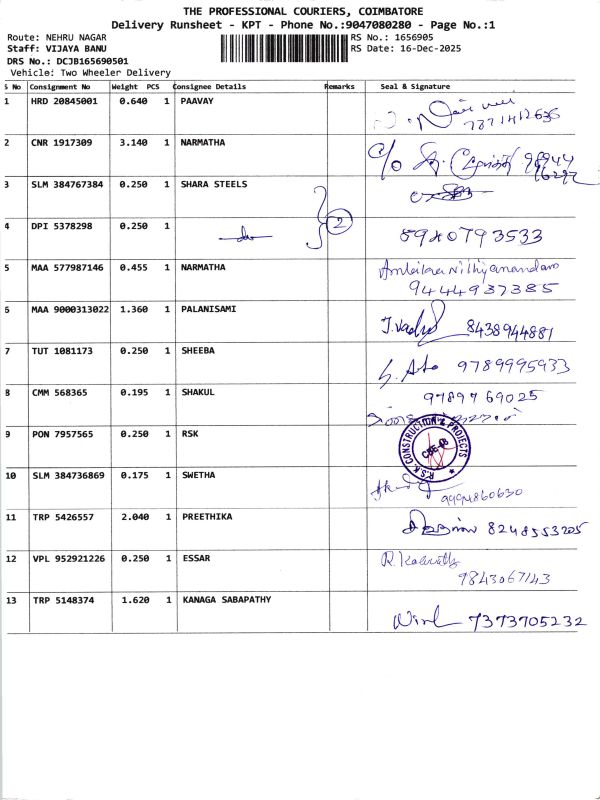 THE PROFESSIONAL COURIERS, COIMBATORE
Delivery Runsheet - KPT - Phone No.:9047080280 - Page No.:1
Route: NEHRU NAGAR
RS No.: 1656905
Staff: VIJAYA BANU
RS Date: 16-Dec-2025
DRS No.: DCJB165690501
Vehicle: Two Wheeler Delivery
S No Consignment No Weight PCS Consignee Details Remarks Seal & Signature
1 HRD 20845001 0.640 1 PAAVAY
2 CNR 1917309 3.140 1 NARMATHA
C/o
3 SLM 384767384 0.250 1 SHARA STEELS
2
4 DPI 5378298 0.250 1 8940793533
5 MAA 577987146 0.455 1 NARMATHA
9444937385
6 MAA 9000313022 1.360 1 PALANISAMI
8438944881
7 TUT 1081173 0.250 1 SHEEBA
9789995933
8 CMM 568365 0.195 1 SHAKUL 9789769025
9 PON 7957565 0.250 1 RSK
R.S.K CONSTRUCTION & PROJECTS
CBE-08
10 SLM 384736869 0.175 1 SWETHA
9994860630
11 TRP 5426557 2.040 1 PREETHIKA
8248553205
12 VPL 952921226 0.250 1 ESSAR
9843067143
13 TRP 5148374 1.620 1 KANAGA SABAPATHY
7373705232